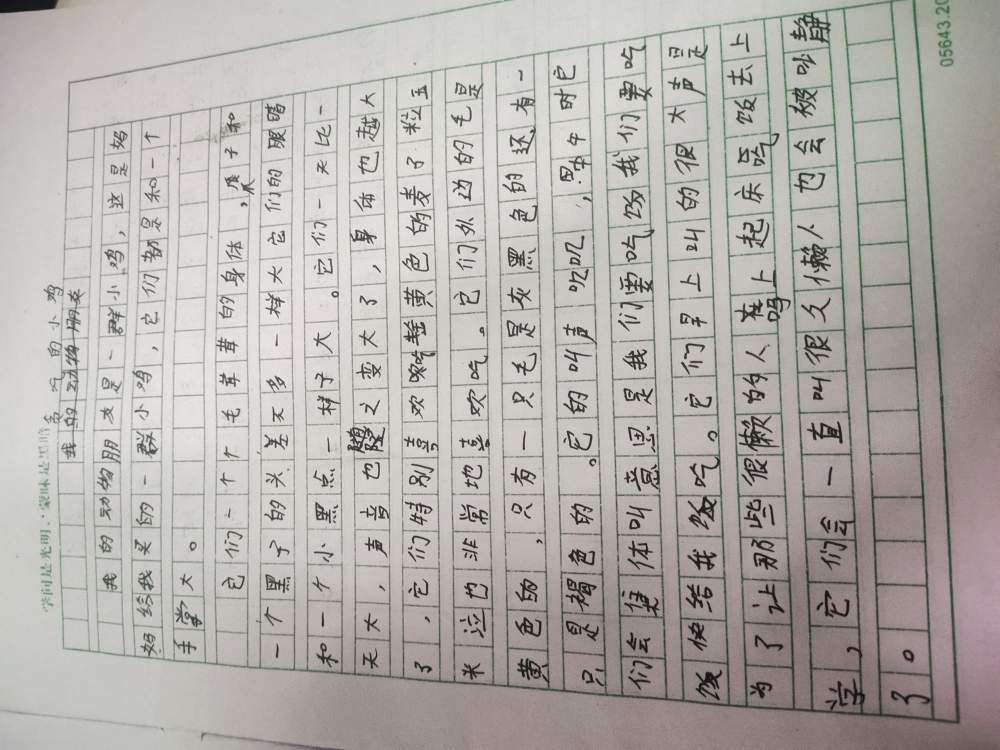 学问是光明，蒙昧是黑暗
贪吃的小鸡
我的动物朋友
我的动物朋友是一群小鸡，这是妈
妈给我买的一群小鸡，它们都是和一个
手掌大。
它们一个个毛茸茸的身体，翼子和
一个黑子的头差不多一样大它们的眼睛
和一个小黑点一样子大。它们一天比一
天大，声音也随之变大了，身体也越大
了，它们特别喜欢吃黄色的麦子粒玉
米泣也非常地喜欢吃。它们外边的毛是
黄色的，只有一只毛是灰黑色的还有一
只是褐色的。它的叫声叽叽，中午时它
们会集体叫意思是我们要吃饭我们要吃
饭快给我饭吃。它们早上叫的很大声是
为了让那些很懒的人早上起床吃饭去上
学，它们会一直叫很久懒人也会被吵静
了。
05643.20